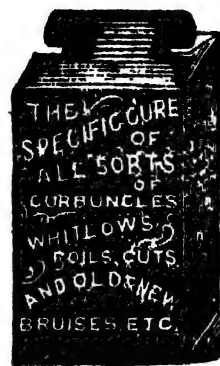 THE
SPECIFIC CURE
OF
ALL SORTS
OF
CURBUNCLES
WHITLOWS,
BOILS, CUTS,
AND OLD & NEW
BRUISES, ETC.